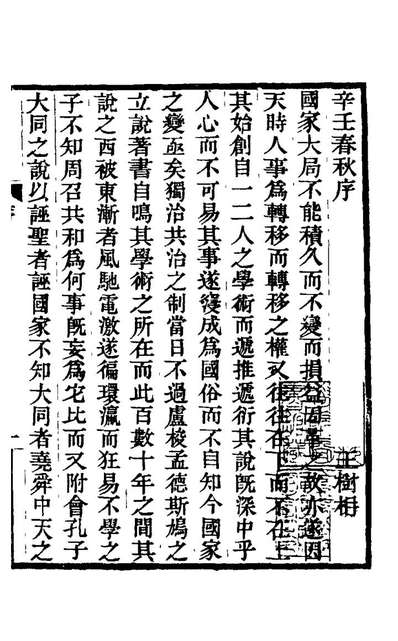 辛壬春秋序
王樹枏
國家大局不能積久而不變而損益因革之故亦遂因
天時人事爲轉移而轉移之權又往往在下而不在上
其始創自一二人之學術而遞推遞衍其說旣深中乎
人心而不可易其事遂變成爲國俗而不自知今國家
之變亟矣獨治共治之制當日不過盧梭孟德斯鳩之
立說著書自鳴其學術之所在而此百數十年之間其
說之西被東漸者風馳電激遂徧環瀛而狂易不學之
子不知周召共和爲何事旣妄爲它比而又附會孔子
大同之說以誣聖者誣國家不知大同者堯舜中天之
序
一